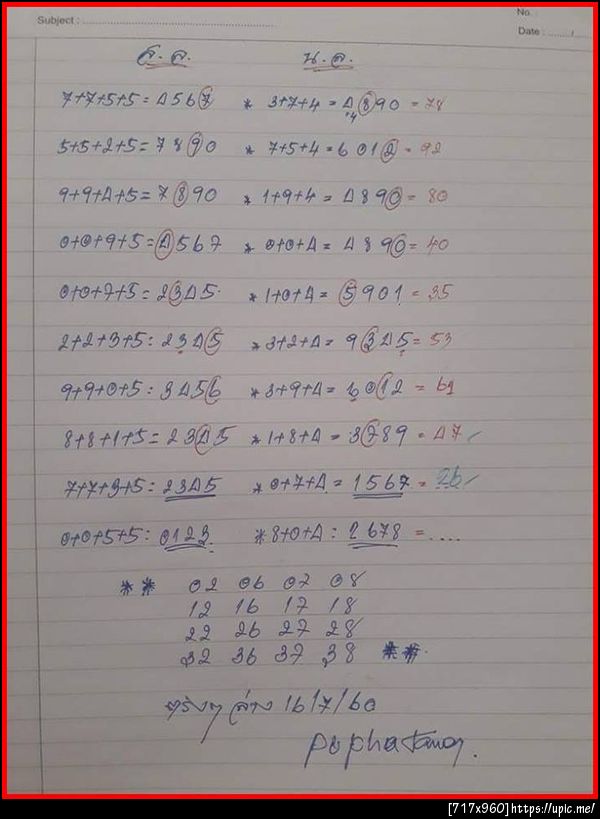 Subject :
No.
Date : ....... /
ส.ล. น.ล.
7+7+5+5 = 4567 * 3+7+4 = 4890 = 78
5+5+2+5 = 7890 * 7+5+4 = 6012 = 92
9+9+4+5 = 7890 * 1+9+4 = 4890 = 80
0+0+9+5 = 4567 * 0+0+4 = 4890 = 40
0+0+7+5 = 2345 * 1+0+4 = 5901 = 35
2+2+3+5 : 2345 * 3+2+4 = 9345 = 53
9+9+0+5 : 3456 * 3+9+4 = 6012 = 61
8+8+1+5 = 2345 * 1+8+4 = 3789 = 47 ✓
7+7+3+5 : 2345 * 0+7+4 = 1567 = 26 ✓
0+0+5+5 : 0123 * 8+0+4 : 2678 = ....
** 02 06 07 08
12 16 17 18
22 26 27 28
32 36 37 38 **
ล่าง 16/7/60
[717x960]https://upic.me/